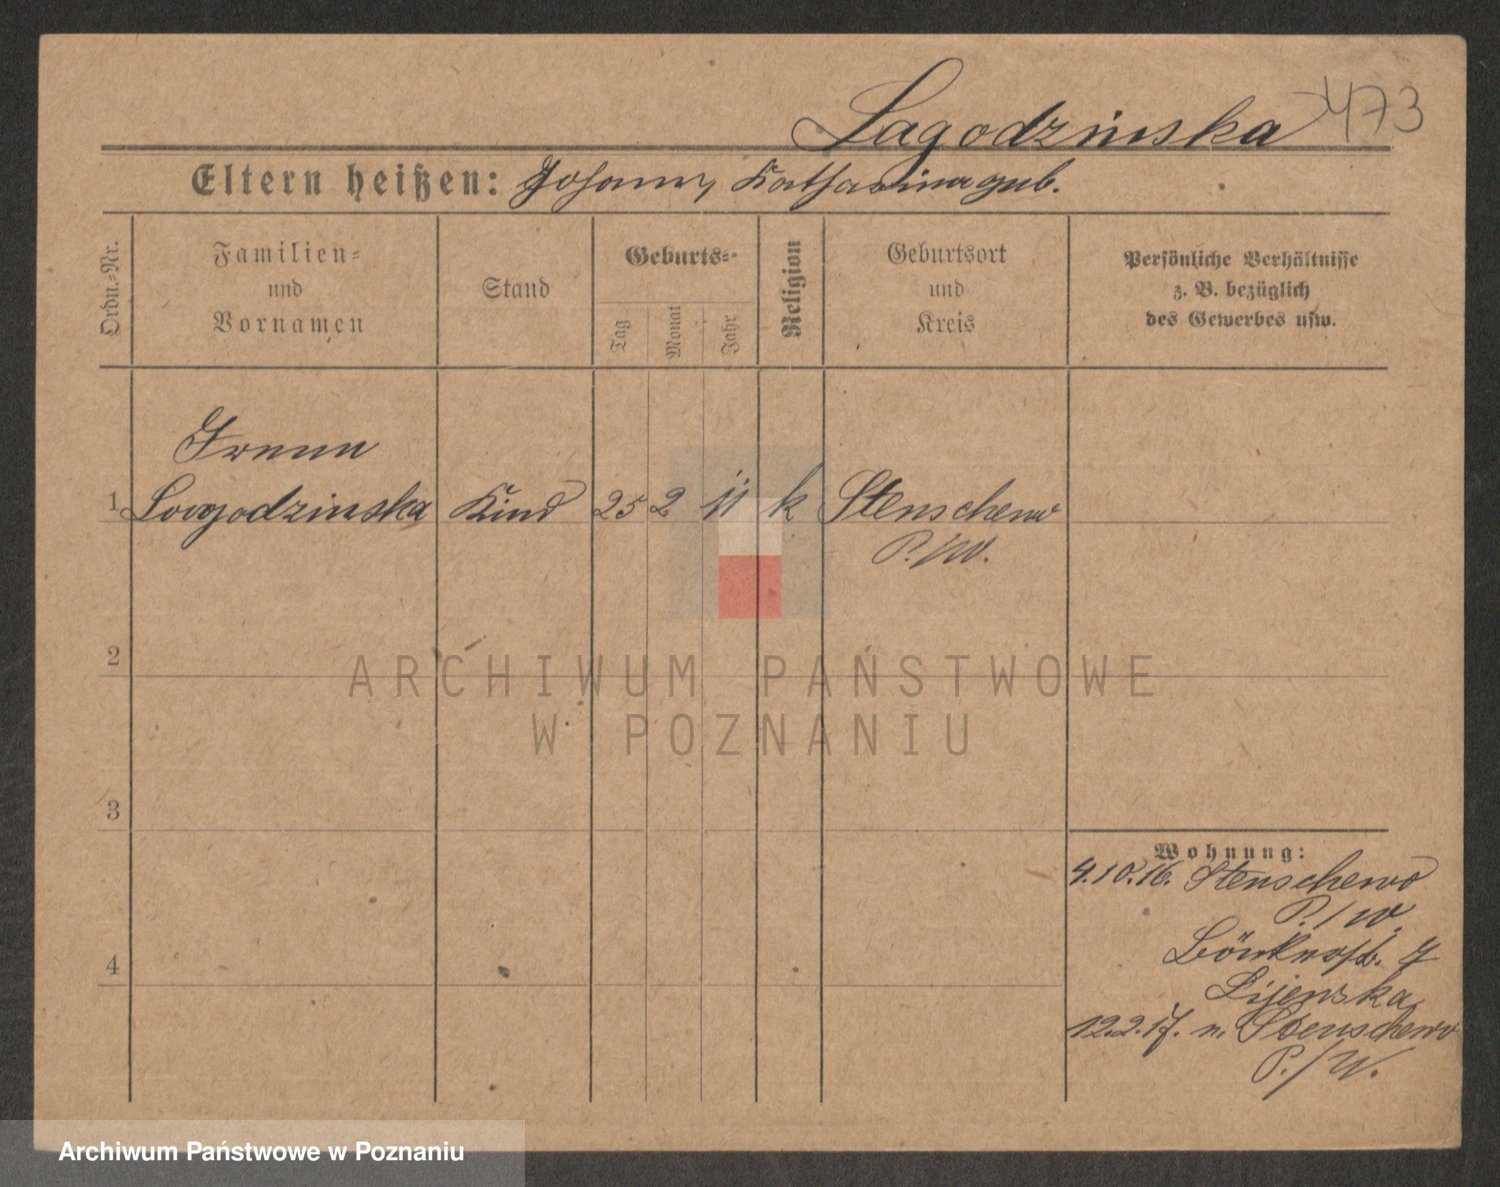 Lagodzinska 473
Eltern heißen: Johann, Katharina geb.
Ordn.-Nr.
Familien-
und
Vornamen
Stand
Geburts-
Tag
Monat
Jahr
Religion
Geburtsort
und
Kreis
Persönliche Verhältnisse
z. B. bezüglich
des Gewerbes usw.
Irena
1 Lagodzinska Kind 25 2 11 k Stenschewo
P./W.
2
3
4
Wohnung:
4.10.16. Stenschewo
P./W.
12.2.17. n. Stenschewo
P./W.
ARCHIWUM PAŃSTWOWE
W POZNANIU
Archiwum Państwowe w Poznaniu